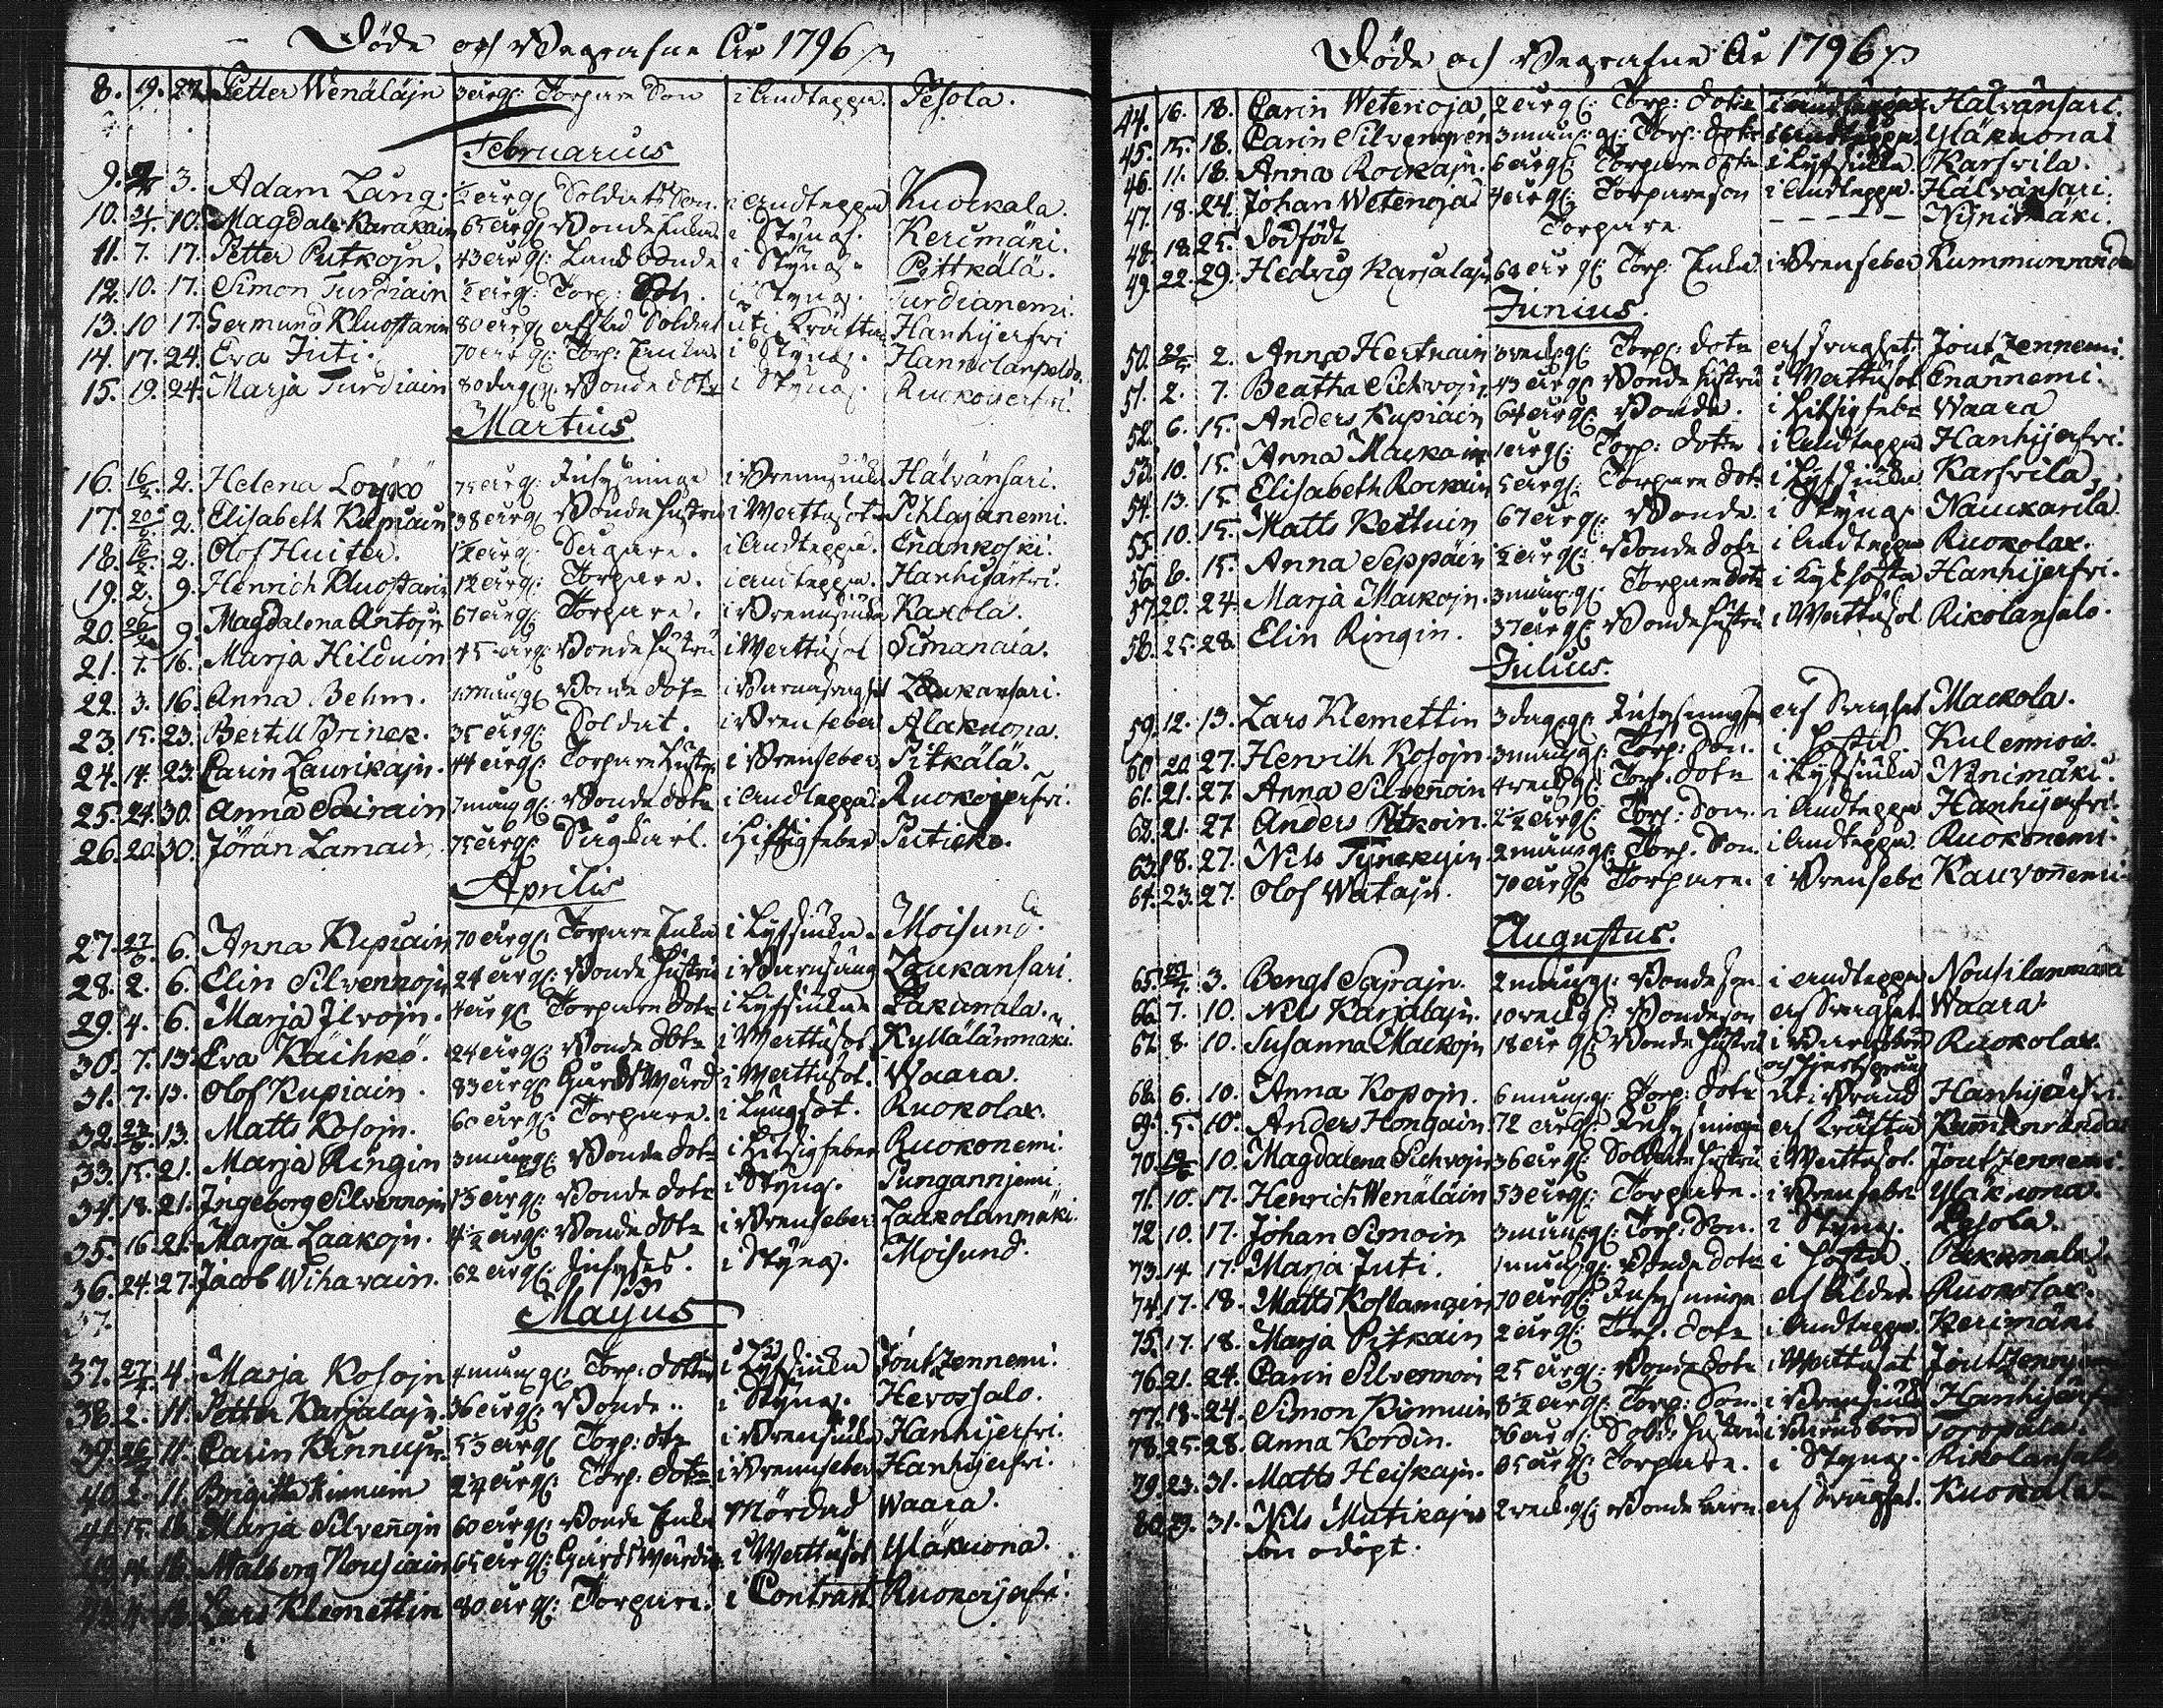 Döde och Begrafne År 1796
8. 19. 24. Petter Wenäläjn 3 årg: Torpare Son i Andteppa. Pesola.
Februarius
9. 3. Adam Lång: ½ årg Soldats Son. i Andteppa Kuokkala.
10. 31/1. 10. Magdale: Karakain 65 årg Bonde Enka i Styng. Kerimäki.
11. 7. 17. Petter Putkojn. 43 årg: Landbonde i Styng. Pittkälä.
12. 10. 17. Simon Turdiain ½ årg: Torp: Son. i Styng. Turdianemi.
13. 10 17. Germund Kluostarin 80 årg afsked Soldat uti Kräfta Hanhijerfvi
14. 17. 24. Eva Juti. 70 år g: Torp: Enka. i Styng. Hannolanpeldo.
15. 19. 24. Marja Turdiain 80 dag g: Bonde dotr i Styng. Ruokojerfvi.
Martius
16. 16/2. 2. Helena Löykö 75 årg: Inhysninge i Brennsiuka Hälvänsari.
17. 20/2. 2. Elisabeth Kupiain 38 årg Bonde Hustru i Wattusot Pihlajanemi.
18. 16/2. 2. Olof Huiter. 1½ årg: Sågare. i Andteppa. Enankoski.
19. 2. 9. Henrich Kluostarin 12 årg: Torpare. i andteppa. Hanhijärfvi.
20. 26/2 9. Magdalena Antojn 67 årg: Torpare. i Brennsiuka Kakola.
21. 1. 16. Marja Hilduin 45 årg: Bonde Hustru i Wattusot Simanala.
22. 3. 16. Anna Behm. Bonde dotr i Barnaswaghet Laukansari.
23. 15. 23. Bertill Brinck. 35 årg: Soldat. i Brenfeber Alakuona.
24. 14. 23. Carin Laurikajn. 44 årg: Torpare Hustr i Brenfeber. Pitkälä.
25. 24. 30. Anna Sairain 7 mån g: Bonde dotr i Andteppa Ruokojerfvi.
26. 20. 30. Jöran Lamain 75 årg Sågkarl. i Hitsigfeber Putikko.
Aprilis
27. 27/3. 6. Anna Kupiain 70 årg: Torpare Enka i Lysiuka. Moisund.
28. 2. 6. Elin Silvennojn 24 årg: Bonde Hustru i Barnsäng Laukansari.
29. 4. 6. Marja Ilvojn. 4 årg Torpare Dotr i Lysiuka Pakumala.
30. 7. 13. Eva Käihkö. 24 årg: Bonde dotr i Wattusot Kyllälänmäki.
31. 7. 13. Olof Kupiain. 83 årg Gårds Wärd i Wattusot. Waara.
32. 23/3. 13. Matts Kosojn. 60 årg: Torpare. i Lungsot. Ruokolax.
33. 15. 21. Marja Ringin 3 mång: Bonde dotr i Hitsigfeber Ruokonemi.
34. 18. 21. Ingeborg Silvennojn årg: Bonde dotr i Styng. Pungannjemi.
35. 16 21. Marja Laakojn. 4½ årg: Bonde dotr i Brenfeber. Laakolanmäki.
36. 24. 27. Jacob Wihavain. 62 årg: Inhyses. i Styng. Moisund.
37.
Majus
37. 27/4. 4. Marja Kosojn 4 mån g: Torp: dotter i Lysiuka Joutzennemi.
38. 2. 11. Petter Karjalajn. 36 årg: Bonde. i Styng. Hevossalo.
39. 26/4 11. Carin Kinnujn. årg Torp: dotr i Brensiuka Hanhijerfvi.
40. 2. 11. Brigitta Kinnuin årg: Torp: dotr i Brennfeber Hanhijerfvi.
41. 15. 16. Marja Silvennojn 60 årg: Bonde Enka Mördad Waara.
42 14. 16. Malberg Nousiain 65 årg: Gårds Wärdin i Wattusot Yläkuona.
43 4. 16. Lars Klemettin 80 årg: Torpare. i Contract Ruokojerfvi.
Döde och Begrafne År 1796
44. 16. 18. Carin Wetenoja 2 årg: Torp: dotr i Andteppa Hälvänsari.
45. 15. 18. Carin Silvenojn 3 mån: g: Torp: dotr i Andteppa Yläkuona
46. 11. 18. Anna Rockajn. 6 årg: Torpare dotr i Lysiuka. Karsvila.
47. 18. 24. Johan Wetenoja 4 årg: Torpareson i Andteppa. Hälvänsari.
48. 18. 25. Dödfödt Torpare - - - - - Nijnimäki.
49. 22. 29. Hedvig Karjalajn 64 år g: Torp: Enka i Brenfeber Rummunranda
Junius.
50. 22/5. 2. Anna Hertuain 3 veck g: Torp: dotr af svaghet. Joutzennemi.
51. 2. 7. Beatha Sichvojn 43 årg: Bonde Hustru i Wattusot Enannemi.
52. 6. 15. Anders Kupiain 64 årg: Bonde. i Hitsigfeber Waara
53. 10. 15. Anna Mackain 1 årg: Torp: dotr i Andteppa Hanhijerfvi.
54. 13. 15. Elisabeth Rockain 5 årg: Torpare dotr i Lysiuka Karsvila.
55. 10. 15. Matts Kettuin 67 årg: Bonde i Styng. Naukarila
56. 6. 15. Anna Seppäin ½ årg: Bonde dotr i Andteppa Ruokolax.
57. 20. 24. Marja Mackojn. 3 mån g: Torpare dotr i Kykhosta Hanhijerfvi.
58. 25. 28. Elin Ringin. 37 årg: Bonde Hustru i Wattusot Rikolansalo.
Julius.
59. 12. 13. Lars Klemettin 3 dag g: Inhysning son af Svaghet Mackola.
60. 20. 27. Henrich Kosojn. 3 mån g: Torp: Son. i Hosta. Kulennois.
61. 21. 27. Anna Silvennoin 4 veck g: Torp. dotr i Lysiuka Ninimäki.
62. 21. 27. Anders Pitkoin. 2½ årg: Torp: Son. i Andteppa Hanhijerfvi.
63. 18. 27. Nils Tynckyin 2 mån g: Torp. Son. i Andteppa. Ruokonemi.
64. 23. 27. Olof Watajn. 70 årg: Torpare. i Brenfeber Kauvonnemi.
Augustus.
65. 27/7. 3. Bengt Sajrajn. 2 mån g: Bonde son i andteppa Nousilanmäki
66. 7. 10. Nils Karjalajn. 10 veck g: Bondeson af Svaghet Waara
67. 8. 10. Susanna Mackojn 18 år g: Bonde Hustru i Barnsbörd Ruokolax.
och Hjertsprång
68. 6. 10. Anna Kopojn. 6 mån g: Torp: dotr uti Brånd Hanhijärfvi.
69. 5. 10. Anders Hongain 72 årg: Inhysninge af Kräfta Rummunranda
70. 19/6 10. Magdalena Sichvojn 36 årg: Soldate Hustru i Wattusot. Joutzennemi.
71. 10. 17. Henrich Wenäläin 53 årg: Torpare. i Brenfeber Yläkuona.
72. 10. 17. Johan Simoin 3 mån g: Torp: Son. i Styng. Pesola.
73. 14. 17. Marja Juti. 1 mån g: Bonde dotr i Hosta. Pakumala.
74. 17. 18. Matts Koslamgin 70 årg: Inhysninge af Ålder Ruokolax.
75. 17. 18. Marja Pitkain 2 årg: Torp. dotr i Andteppa. Kerimäki
76. 21. 24. Carin Silvennoin 25 årg: Bonde dotr i Wattusot Joutzennemi
77. 18. 24. Simon Kinnuin 8½ årg: Torp: Son. i Brensiuka Hanhijärfvi
78. 25. 28. Anna Kordin. 36 år g: Sold: Hustru i Barnsbörd Toropala.
79. 23. 31. Matts Heiskajn. 65 årg: Torpare. i Styng. Rikolansalo
80. 29. 31. Nils Mutikajn 2 veck g: Bonde barn af Svaghet. Kuokkala.
son odöpt.